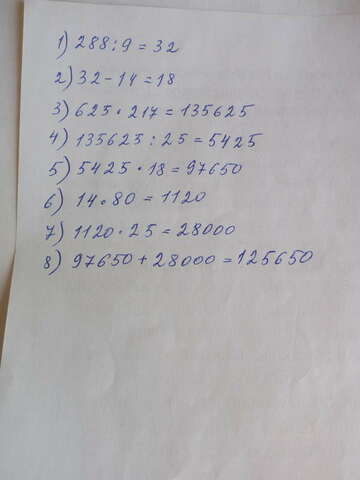 1) 288:9=32
2) 32-14=18
3) 625·217=135625
4) 135625:25=5425
5) 5425·18=97650
6) 14·80=1120
7) 1120·25=28000
8) 97650+28000=125650